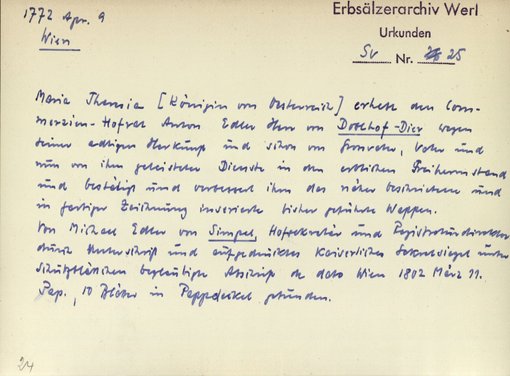 1772 Apr. 9
Wien
Erbsälzerarchiv Werl
Urkunden
Sv Nr. 25
Maria Theresia [Königin von Oesterreich] erhebt den Com-
merzien-Hofrat Anton Edler Herr von Doblhof-Dier wegen
seiner adligen Herkunft und schon von Grossvater, Vater und
nun von ihm geleisteten Dienste in den erblichen Freiherrnstand
und bestätigt und verbessert ihm das näher beschriebene und
in farbiger Zeichnung inserierte bisher geführte Wappen.
Von Michael Edler von Simpel, Hofsekretär und Registraturdirektor
durch Unterschrift und aufgedrücktes Kaiserliches Sekretsiegel unter
beglaubigte Abschrift de dato Wien 1802 März 11.
Pap., 10 Blätter in Pappdeckel gebunden.
24